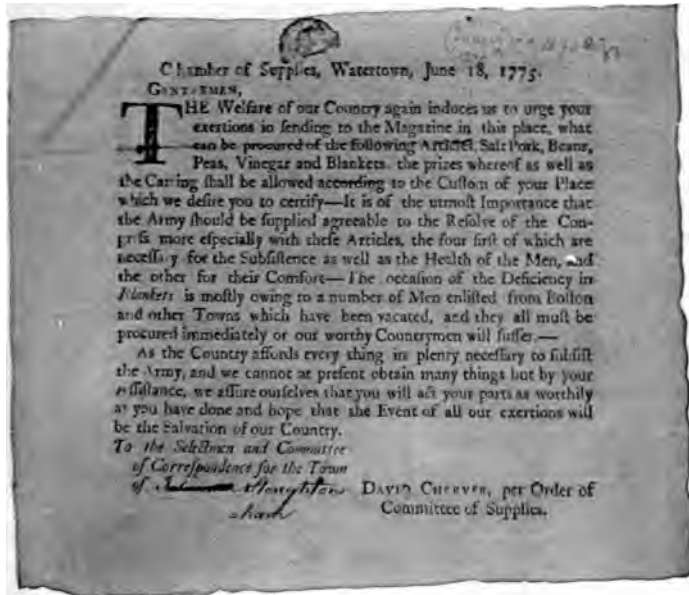 Chamber of Supplies, Watertown, June 18, 1775.
GENTLEMEN,
THE Welfare of our Country again induces us to urge your
exertions in sending to the Magazine in this place, what
can be procured of the following Articles, Salt Pork, Beans,
Peas, Vinegar and Blankets, the prizes whereof as well as
the Carting shall be allowed according to the Custom of your Place
which we desire you to certify—It is of the utmost Importance that
the Army should be supplied agreeable to the Resolve of the Con-
gress more especially with these Articles, the four first of which are
necessary for the Subsistence as well as the Health of the Men, and
the other for their Comfort—The occasion of the Deficiency in
Blankets is mostly owing to a number of Men enlisted from Boston
and other Towns which have been vacated, and they all must be
procured immediately or our worthy Countrymen will suffer.—
As the Country affords every thing in plenty necessary to subsist
the Army, and we cannot at present obtain many things but by your
assistance, we assure ourselves that you will act your parts as worthily
as you have done and hope that the Event of all our exertions will
be the Salvation of our Country.
To the Selectmen and Committee
of Correspondence for the Town
of Stoughton
ham
DAVID CHEEVER, per Order of
Committee of Supplies.